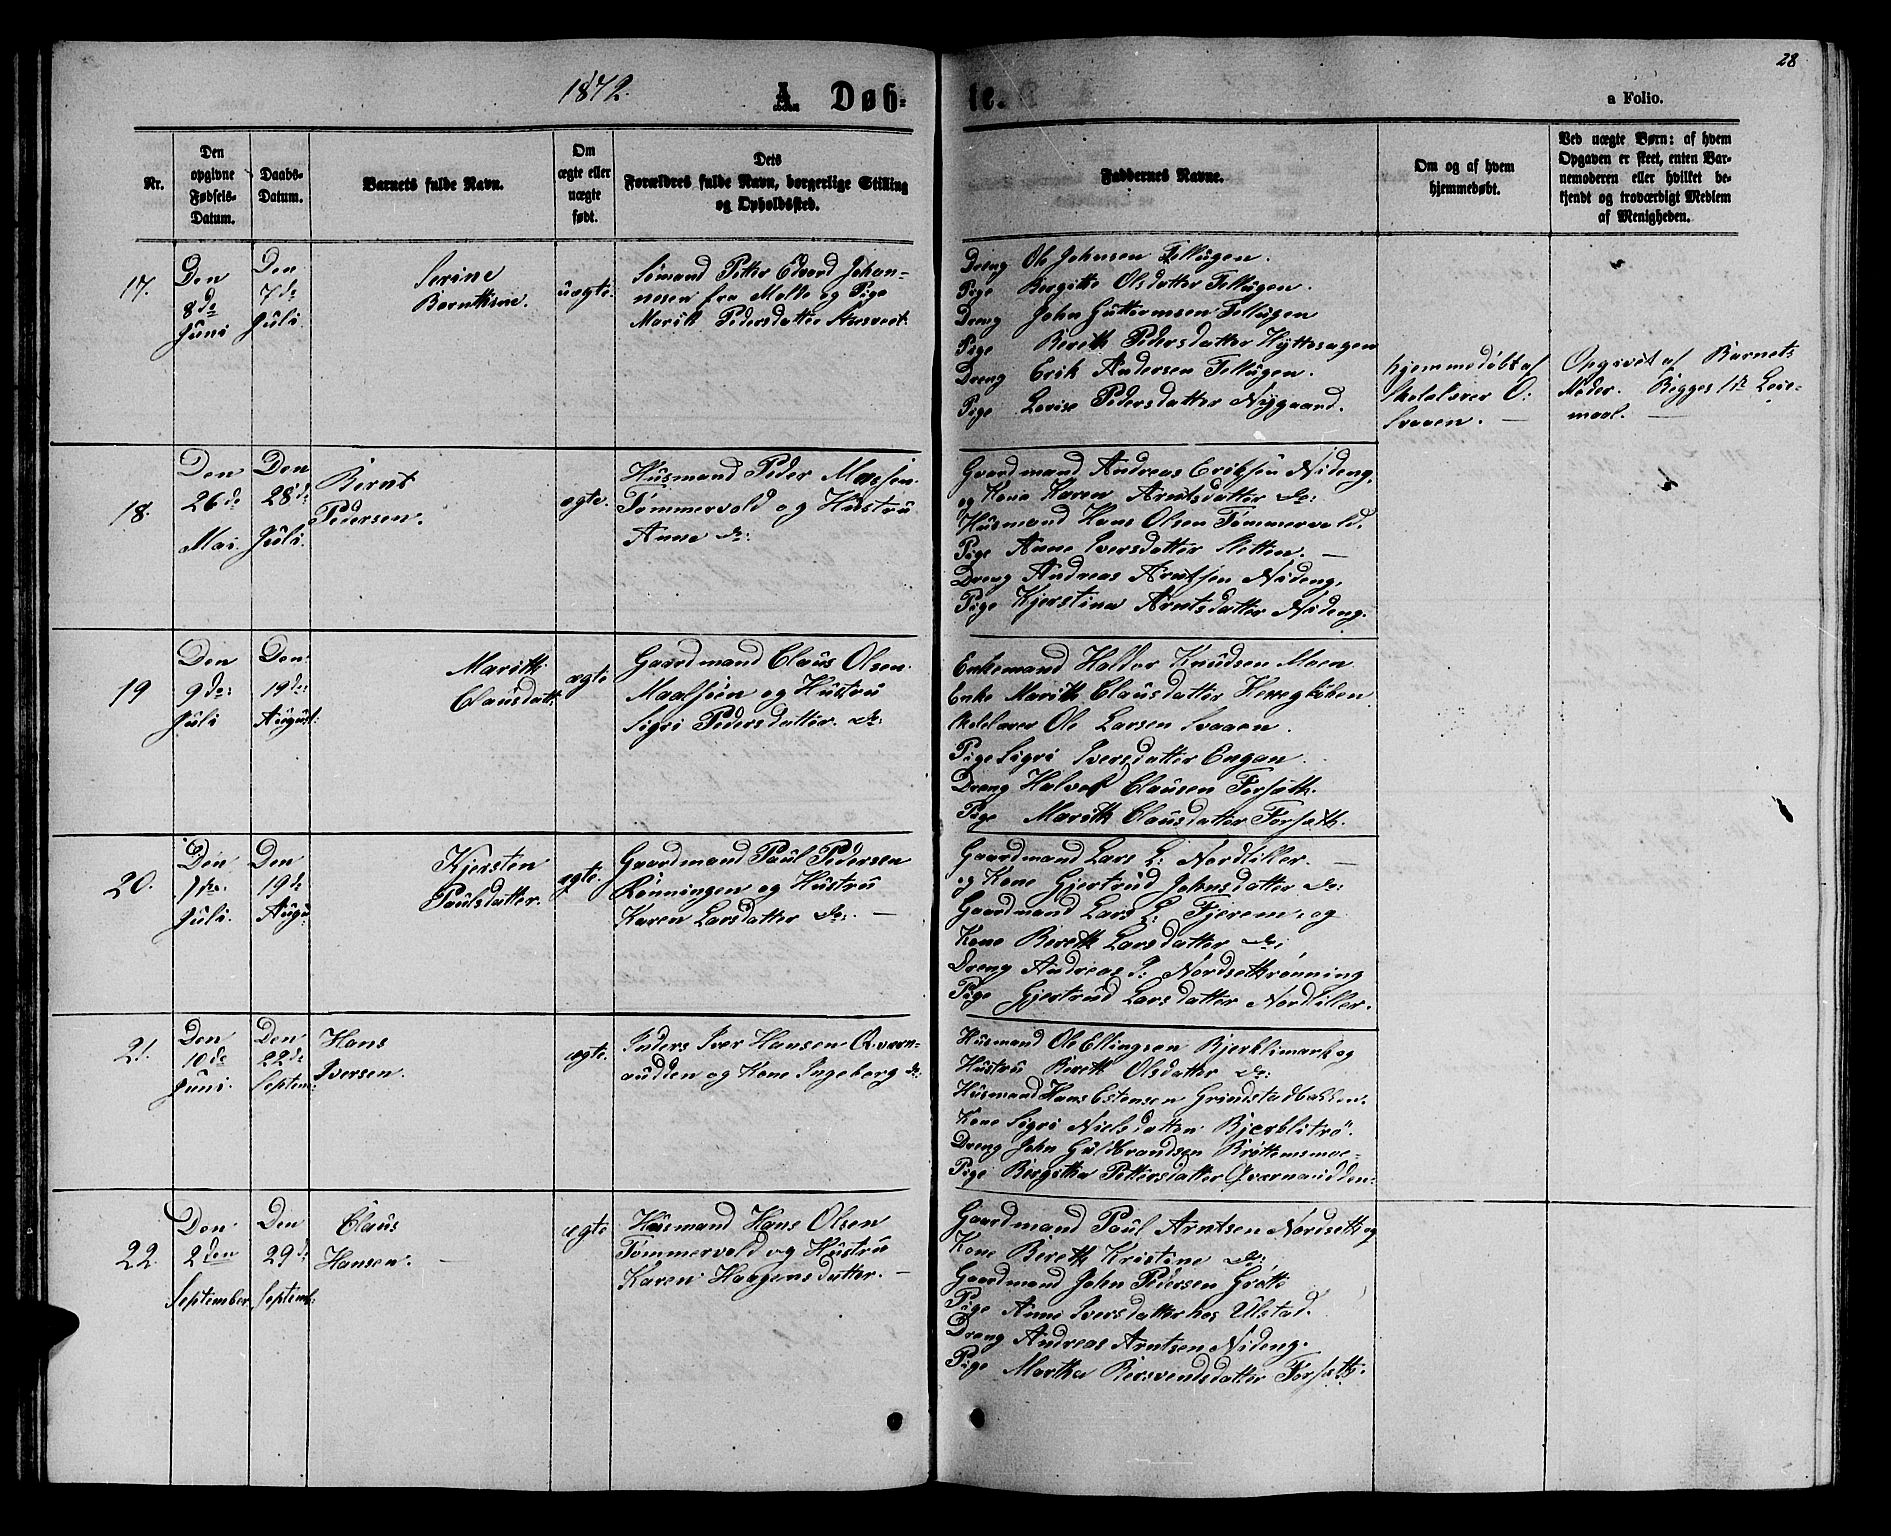 28
1872.
A. Døb-
te.
a Folio.
Nr.
Den opgivne Fødsels-Datum.
Daabs-Datum.
Barnets fulde Navn.
Om ægte eller uægte født.
Dets
Forældres fulde Navn, borgerlige Stilling
og Opholdssted.
Faddernes Navne.
Om og af hvem
hjemmedøbt.
Ved uægte Børn: af hvem
Opgaven er skeet, enten Bar-
nemoderen eller hvilket be-
kjendt og troværdigt Medlem
af Menigheden.
17.
Den
8de
Juni
Den
7de
Juli
Serine
Berntine.
uægte.
Sømand Petter Edvard Johan-
nesen fra Molde og Pige
Marit Pedersdatter
Dreng Ole Johnsen Fellugen.
Pige Bergitte Olsdatter Fellugen.
Dreng John Guttormsen Fellugen
Pige Berith Pedersdatter Hyttesagen
Dreng Erik Andersen Fellugen.
Pige Lovise Pedersdatter Nygaard.
hjemmedøbt af
Skolelærer O:
Svaaen. —
Opgivet af Barnets
Moder. Begges 1te Leie-
maal. —
18.
Den
26de
Mai.
Den
28de
Juli.
Bernt
Pedersen.
ægte.
Husmand Peder
Tømmervold og Hustru
Anne do:
Gaardmand Andreas Eriksen Nideng,
og Kone Karen Arntsdatter do:
Husmand Hans Olsen Tømmervold.
Pige Anne Iversdatter Sletten. —
Dreng Andreas Arntsen Nideng,
Pige Kjerstina Arntsdatter Nideng.
19
Den
9de:
Juli
Den
19de:
August:
Marith
Clausdatt:
ægte
Gaardmand Claus Olsen
og Hustru
Sigri Pedersdatter. do:
Enkemand Haldor Knudsen Moen
Enke Marith Clausdatter
Skolelærer Ole Larsen Svaaen.
Pige Sigri Iversdatter Engan.
Dreng Halvor Clausen Forseth.
Pige Marith Clausdatter Forseth.
20.
Den
1ste:
Juli.
Den
19de
Augu:
Kjersten
Paulsdatter.
ægte.
Gaardmand Paul Pedersen
Rønningen og Hustru
Karen Larsdatter do: —
Gaardmand Lars L: Nordtiller. —
og Kone Gjertrud Johnsdatter do:
Gaardmand Lars L: Fjerem, og
Kone Berith Larsdatter do:
Dreng Andreas P: Nordsetrønning
Pige Gjertrud Larsdatter Nordtiller.
21.
Den
10de
Juni.
Den
22de
Septem:
Hans
Iversen.
ægte.
Inders Iver Hansen Qvern-
oudden og Kone Ingeborg do:
Husmand Ole Ellingsen Bjerklimark og
Hustru Berith Olsdatter do:
Husmand Hans Estensen Grindstadbakken.
Kone Sigri Nielsdatter Bjerklitrø.
Dreng John Guldbrandsen Brøttemsmoe-
Pige Bergitha Pettersdatter Qvernaudden.
22.
Den
2den
September
Den
29de
Septemb:
Claus
Hansen. —
ægte
Husmand Hans Olsen
Tømmervold og Hustru
Karen Haagensdatter. —
Gaardmand Paul Arntsen Nordseth og
Kone Berith Kristine do:
Gaardmand John Pedersen Grøtte
Pige Anne Iversdatter hos Ulstad.
Dreng Andreas Arntsen Nideng.
Pige Martha Bersvendsdatter Forseth.